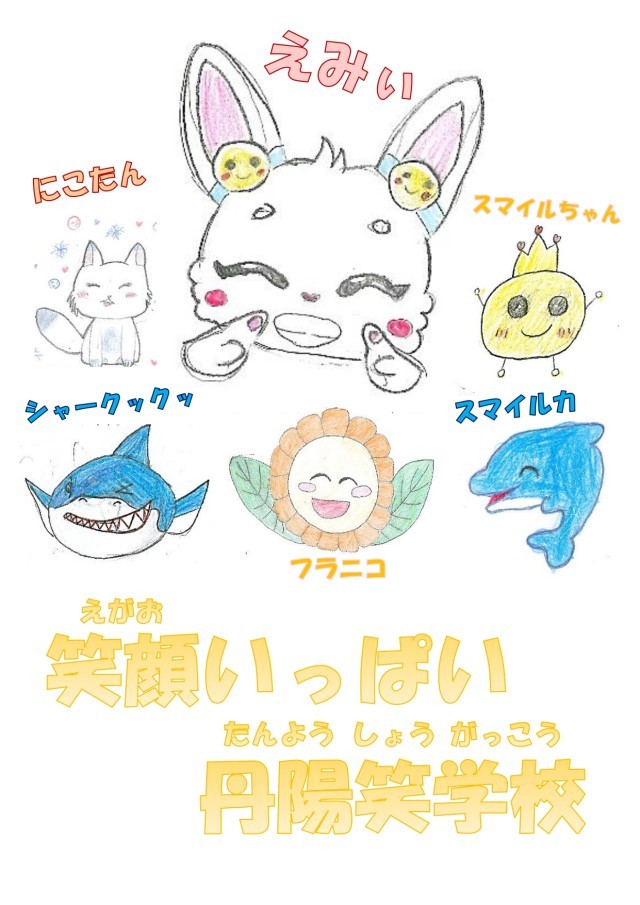 えみぃ
にこたん
スマイルちゃん
シャークックッ
スマイルカ
フラニコ
えがお
笑顔いっぱい
たんよう しょう がっこう
丹陽笑学校